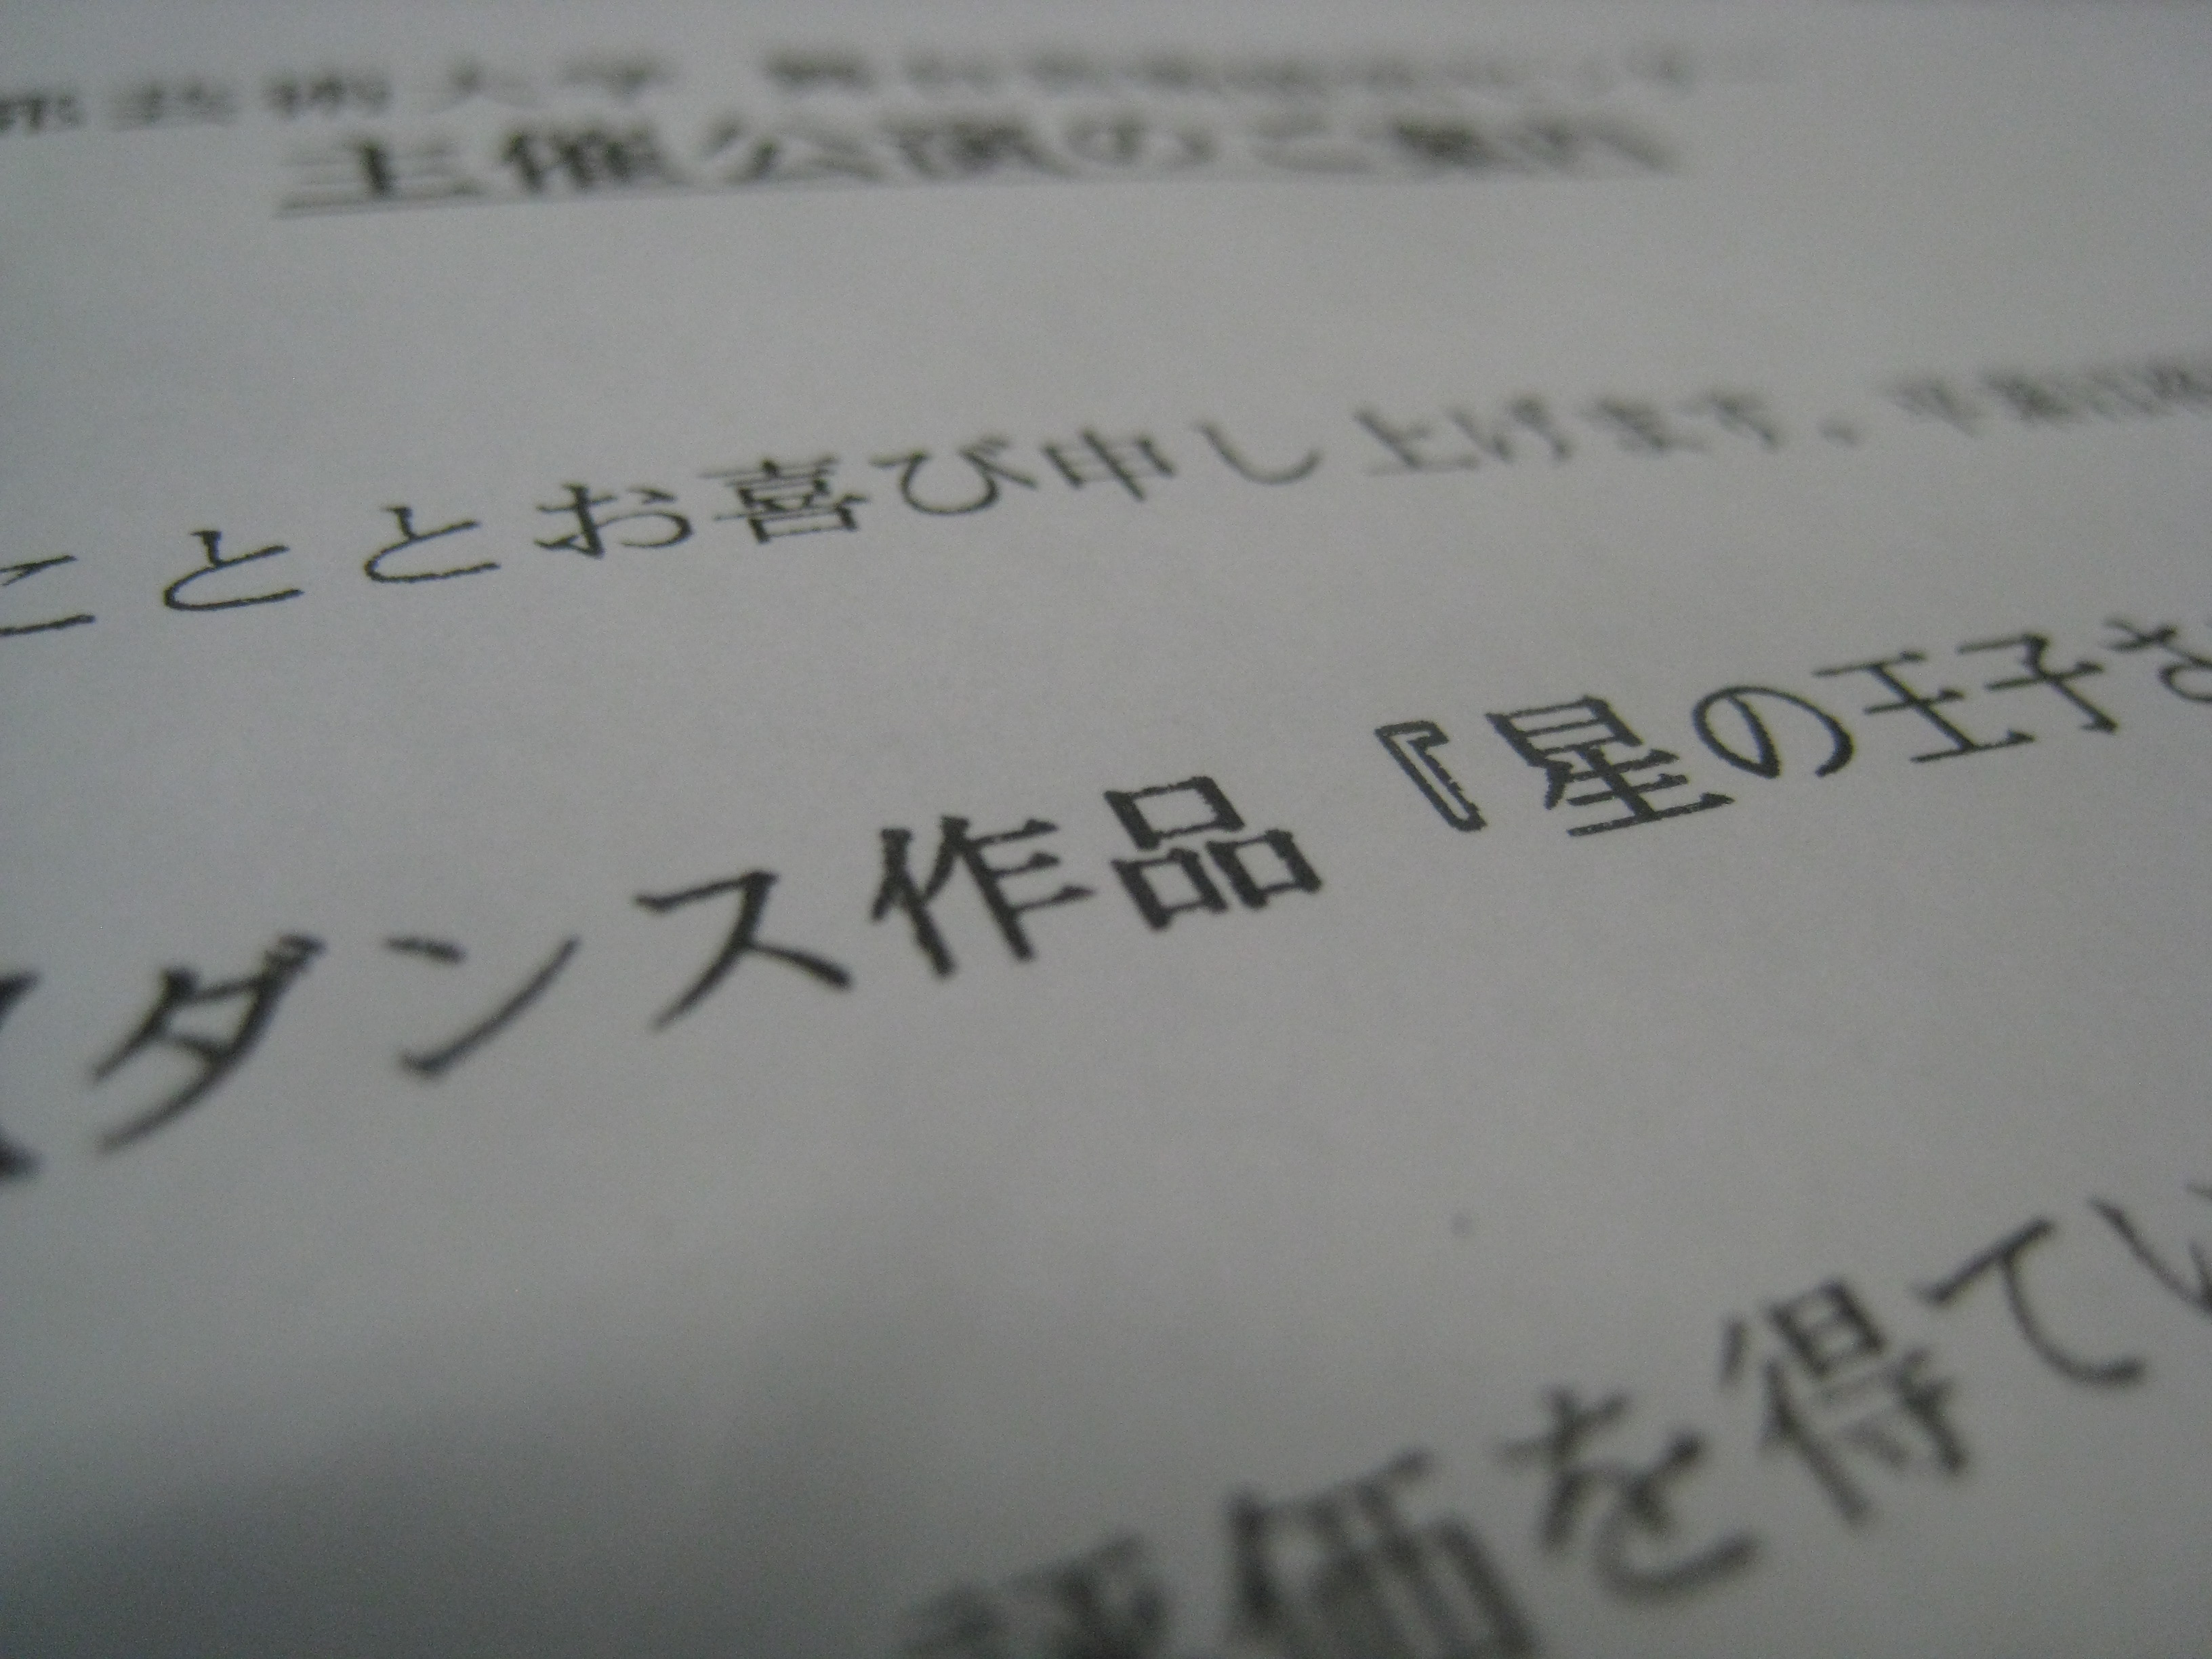 芸術大学
主催公演のご案内
こととお喜び申し上げます。平素
ダンス作品『星の王子さ
評価を得てい